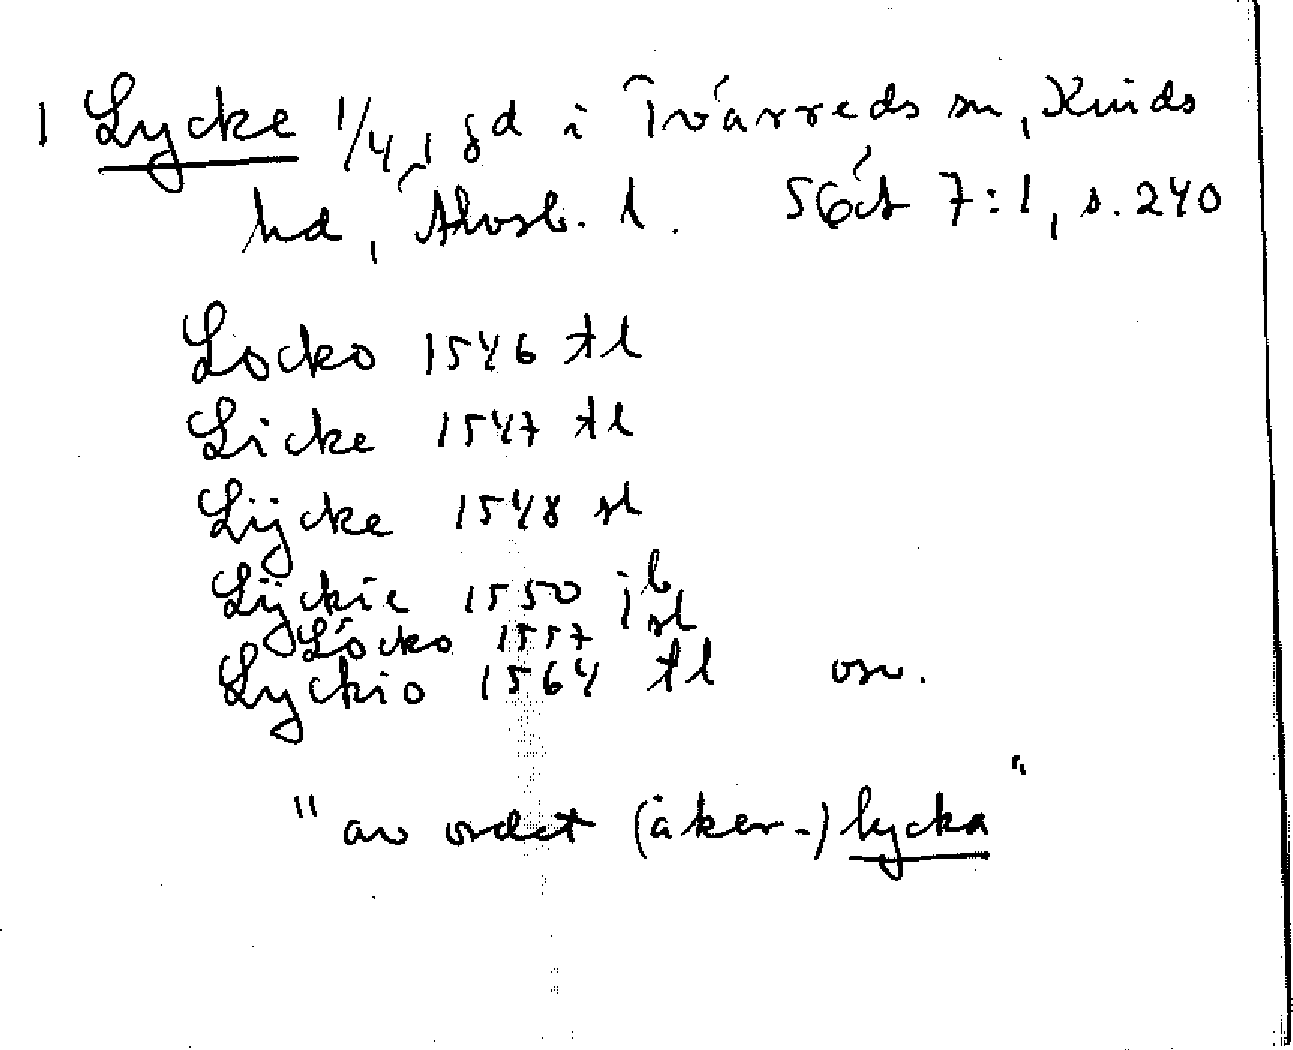 1 Lycke 1/4, gd i Tvärreds sn, Kinds
hd, Älvsb. l. SGÄ 7:1, s. 240
Locko 1546 tl
Licke 1547 tl
Lÿcke 1548 sl
Lÿckie 1550 jb
Löcko 1557 sl
Lyckio 1564 tl osv.
"av ordet (åker-) lycka"